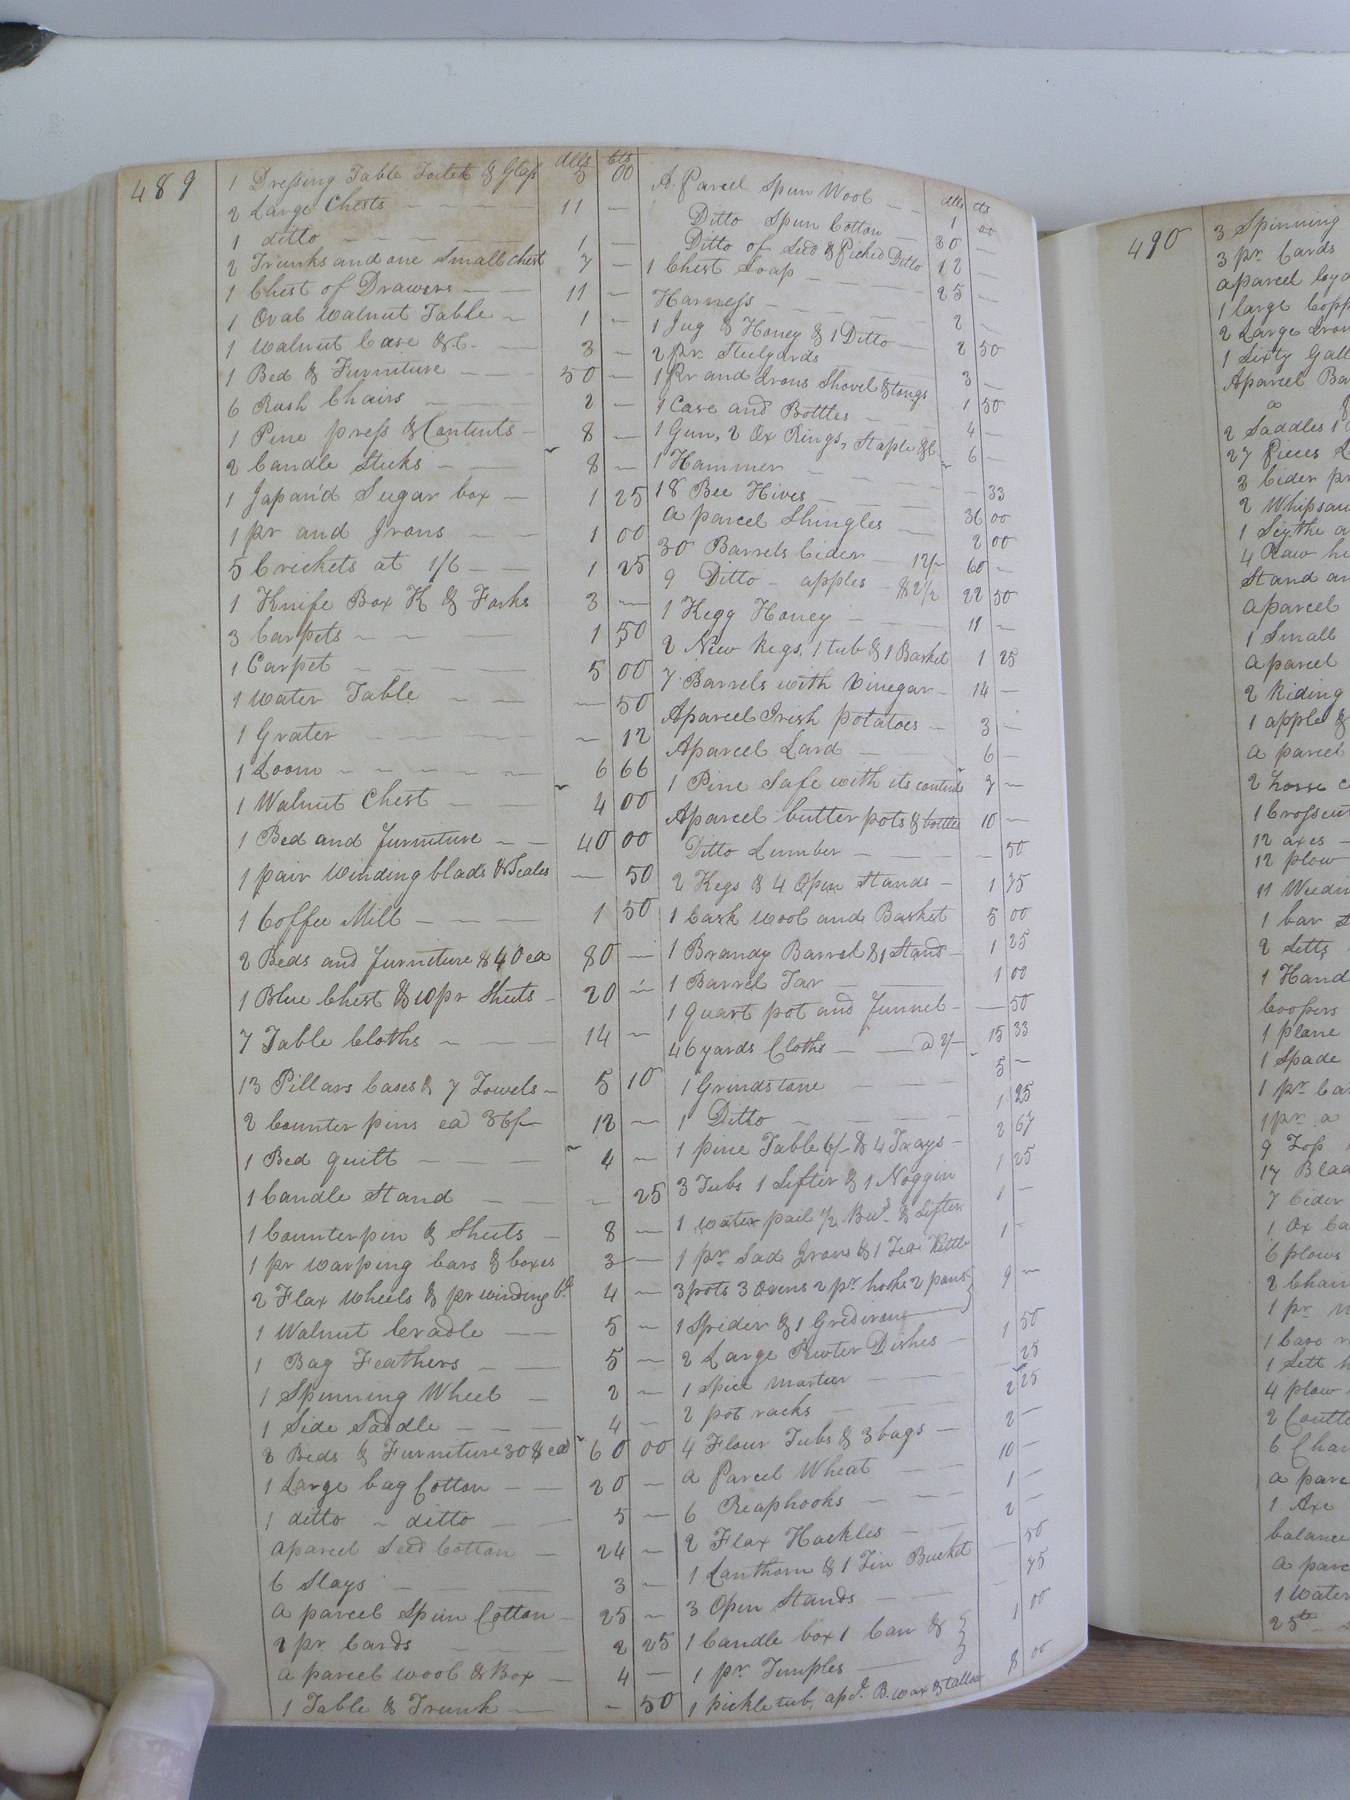 489
dlls cts
1 Dressing Table Toilet & Glass 5 00
2 Large Chests 11 —
1 ditto 1 —
2 Trunks and one Small chest 7 —
1 Chest of Drawers 11 —
1 Oval Walnut Table 1 —
1 Walnut Case &C. 3 —
1 Bed & Furniture 50 —
6 Rush Chairs 2 —
1 Pine press & Contents 8 —
2 Candle Sticks 8 —
1 Japan'd Sugar box 1 25
1 pr and Irons 1 00
5 Crickets at 1/6 1 25
1 Knife Box K & Forks 3 —
3 Carpets 1 50
1 Carpet 5 00
1 water Table — 50
1 Grater — 12
1 Loom 6 66
1 Walnut Chest 4 00
1 Bed and furniture 40 00
1 pair Winding blads & Scales — 50
1 Coffee Mill 1 50
2 Beds and furniture $40 ea 80 —
1 Blue Chest & 10 pr Sheets 20 —
7 Table Cloths 14 —
13 Pillars Cases & 7 Towels 5 10
2 Counter pins ea 36/ 12 —
1 Bed quilt 4 —
1 Candle Stand — 25
1 Counterpin & Sheets 8 —
1 pr warping bars & boxes 3 —
2 Flax Wheels & pr winding bd. 4 —
1 Walnut Cradle 5 —
1 Bag Feathers 5 —
1 Spinning Wheel 2 —
1 Side Saddle 4 —
2 Beds & Furniture 30$ ea 60 00
1 Large bag Cotton 20 —
1 ditto ditto 5 —
aparcel Seed Cotton 24 —
6 Slays 3 —
a parcel Spun Cotton 25 —
2 pr Cards 2 25
a parcel wool & Box 4 —
1 Table & Trunk — 50
dlls cts
A Parcel Spun Wool 1 00
Ditto Spun Cotton 30 —
Ditto of Seed & Picked Ditto 12 —
1 Chest Soap 25 —
Harness 2 —
1 Jug & Honey & 1 Ditto 2 50
2 pr Steelyards 3 —
1 pr and Irons Shovel & tongs 1 50
1 Case and Bottles 4 —
1 Gun, 2 Ox Rings, Staple &C. 6 —
1 Hammer — 33
18 Bee Hives 36 00
a parcel Shingles 2 00
30 Barrels Cider 12/ 60 —
9 Ditto apples $2½ 22 50
1 Kegg Honey 11 —
2 New Kegs, 1 tub & 1 Basket 1 25
7 Barrels with Vinegar 14 —
Aparcel Irish potatoes 3 —
Aparcel Lard 6 —
1 Pine Safe with its contents 7 —
Aparcel butter pots & bottles 10 —
Ditto Lumber — 50
2 Kegs & 4 Open Stands 1 75
1 Cask wool and Basket 5 00
1 Brandy Barrel & 1 Stand 1 25
1 Barrel Tar 1 00
1 quart pot and funnel — 50
46 yards Cloths a 2/ 15 33
1 Grindstone 5 —
1 Ditto 1 25
1 pine Table 6/ & 4 Trays 2 67
3 Tubs 1 Sifter & 1 Noggin 1 25
1 water pail ½ Bul. & Sifter 1 —
1 pr Sad Irons & 1 Tea Kettle 1 —
3 pots 3 Ovens 2 pr hooks 2 pans
1 Spider & 1 Gredirons 9 —
2 Large Pewter Dishes 1 50
1 Spice Morter 25
2 pot racks 2 25
4 Flour Tubs & 3 bags 2 —
a Parcel Wheat 10 —
6 Reaphooks 1 —
2 Flax Hackles 2 —
1 Lanthorn & 1 Tin Bucket — 50
3 Open Stands — 75
1 Candle box 1 Can &
1 pr. Temples 1 00
1 pickle tub, a pcl. B. wax & tallow 8 00
490
3 Spinning
3 pr. Cards
aparcel
1 large Copp
2 Large Iron
1 Sixty Gall
Aparcel Ba
2 Saddles 1
27 Pieces
3 Cider pr
2 Whipsaw
1 Scythe a
4 Raw hi
Stand an
a parcel
1 Small
a parcel
2 Riding
1 apple &
a parcel
2 horse c
1 Crosscut
12 axes
12 plow
11 Weedin
1 bar
2 Setts
1 Hand
Coopers
1 plane
1 Spade
1 pr Ca
1 pr. a
9 Top
17 Blad
7 Cider
1 Ox Ca
6 plows
2 Chair
1 pr.
1 Case
1 Sett
4 plow
2 Coulte
6 Chai
a parc
1 Axe
balance
a parc
1 Water
25th